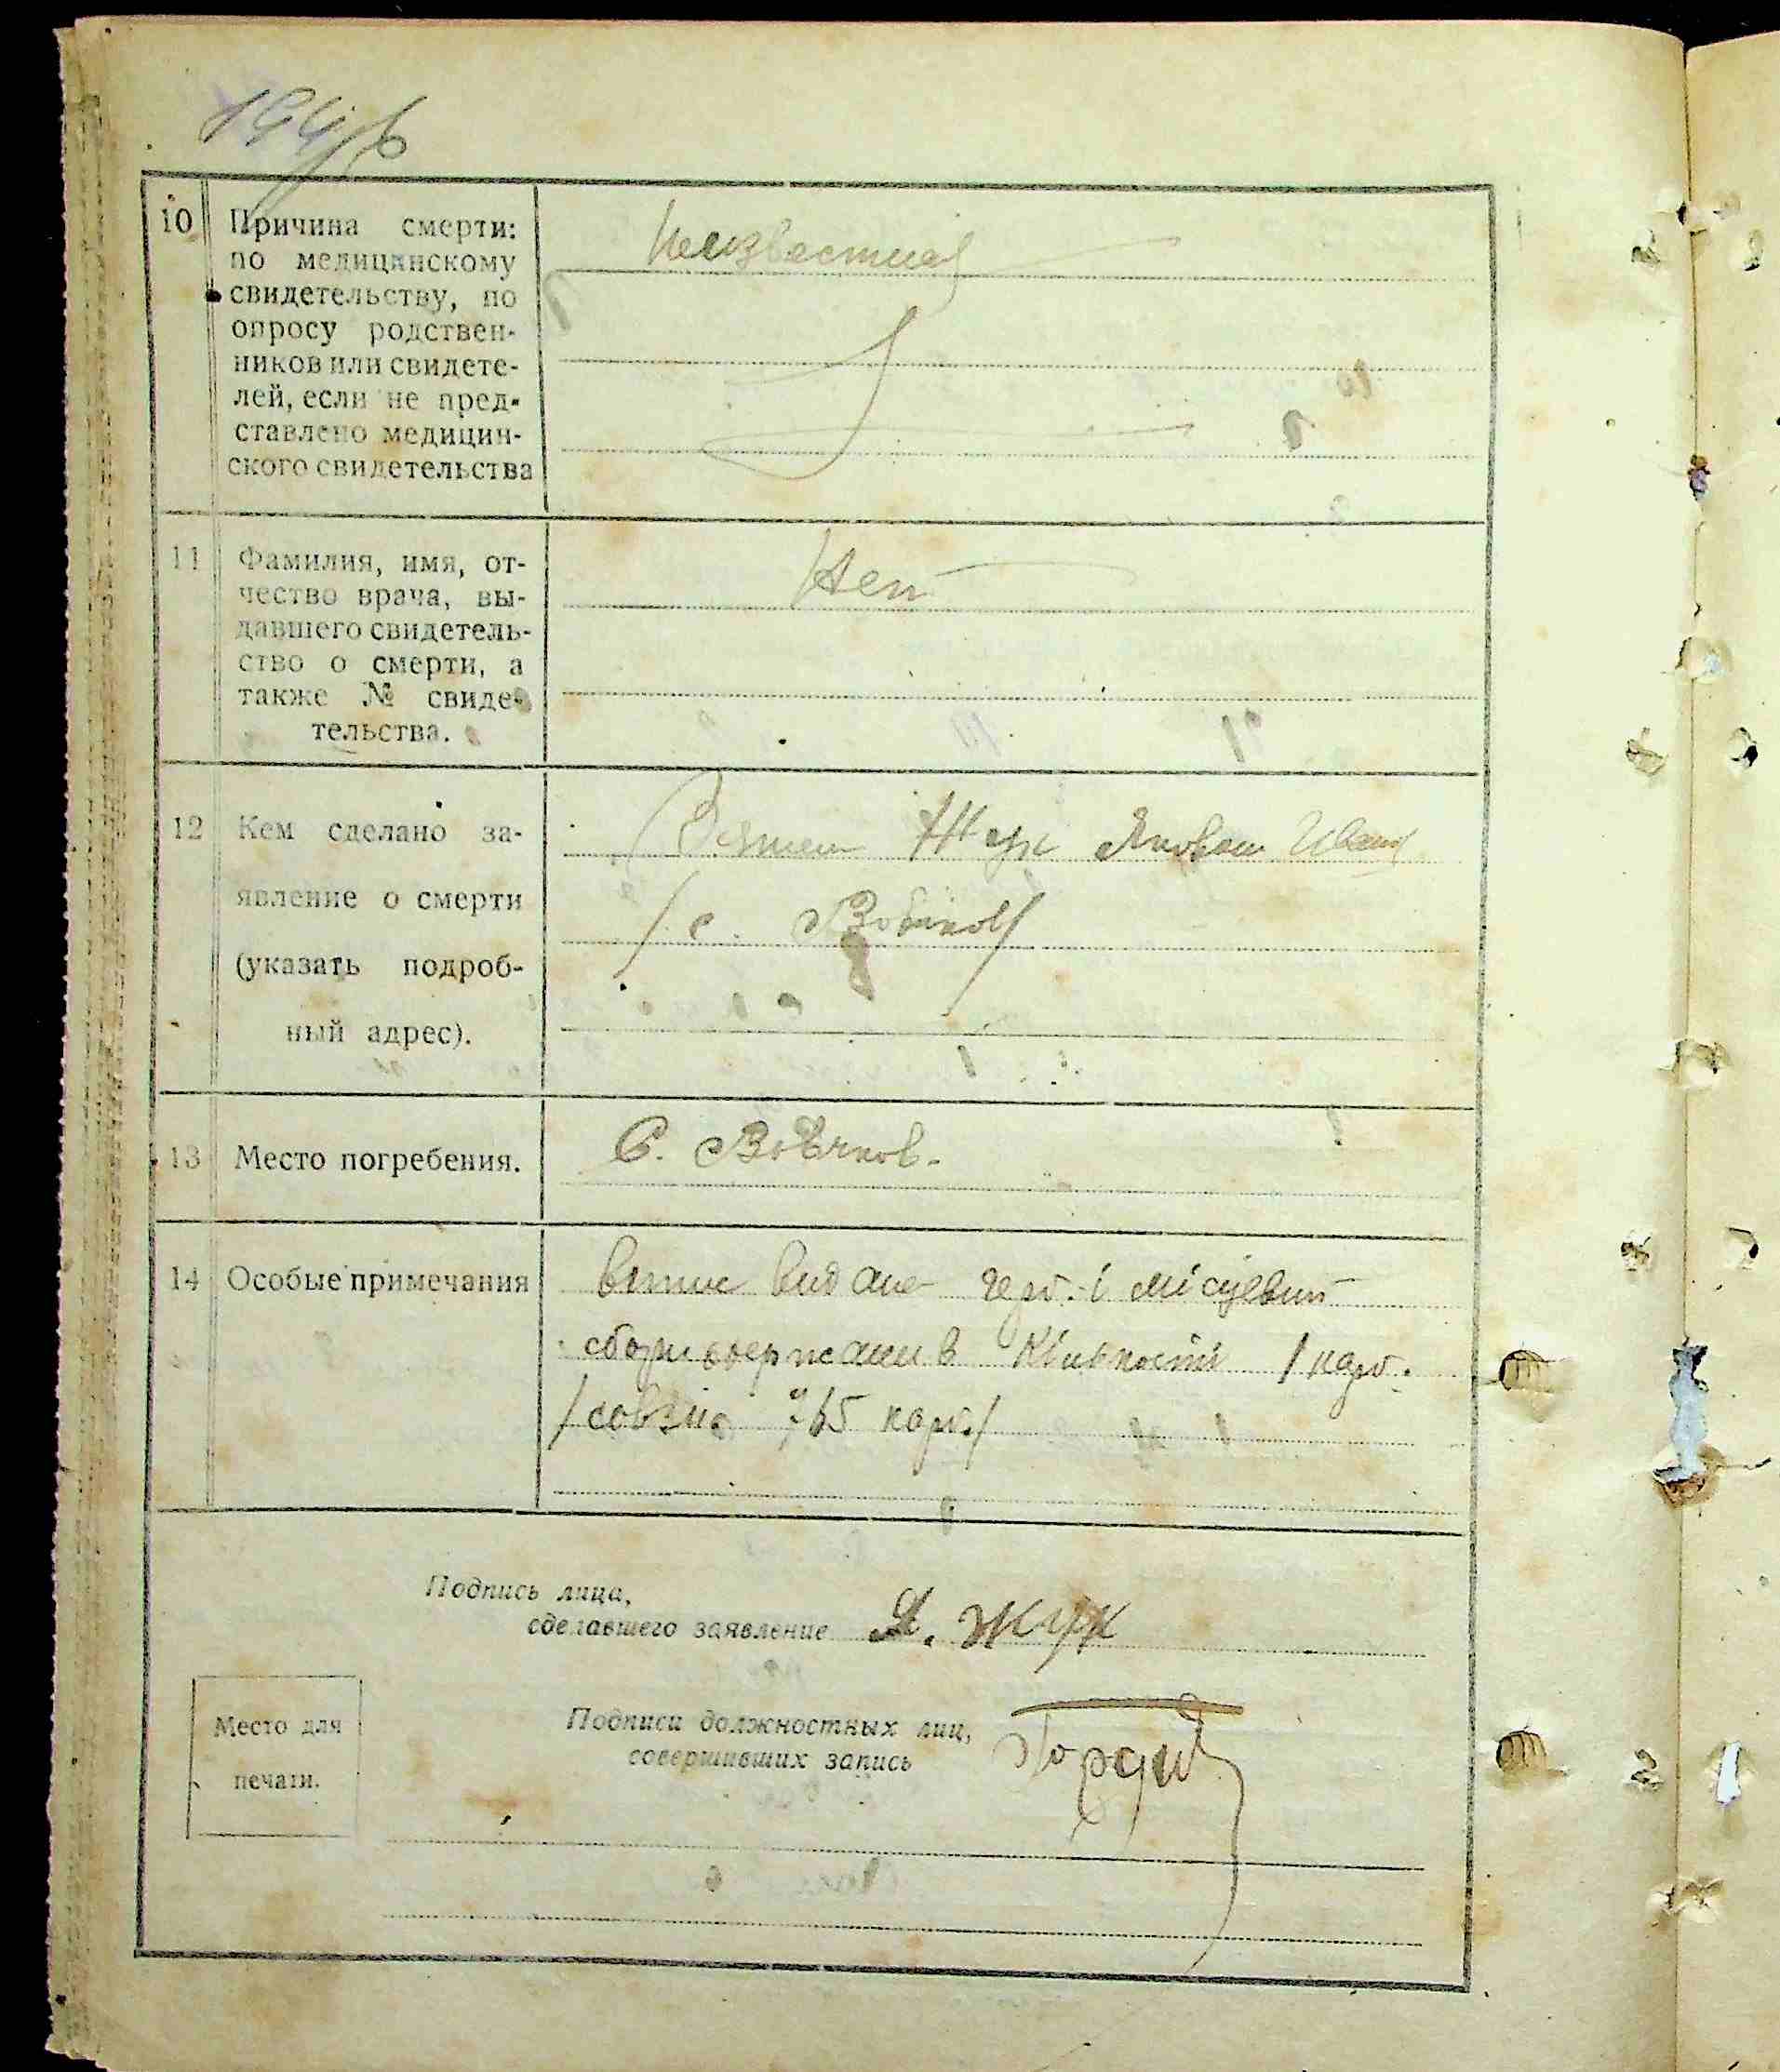 10 Причина смерти:
по медицинскому
свидетельству, по
опросу родствен-
ников или свидете-
лей, если не пред-
ставлено медицин-
ского свидетельства
Неизвестна
11 Фамилия, имя, от-
чество врача, вы-
давшего свидетель-
ство о смерти, а
также № свиде-
тельства.
Нет
12 Кем сделано за-
явление о смерти
(указать подроб-
ный адрес).
Жук Яковом Иван
/с.
13 Место погребения.
С. Вовчков.
14 Особые примечания
видане і місцевий
в кількості 1 карб.
карб./
Подпись лица,
сделавшего заявление Я. Жук
Место для
печати.
Подписи должностных лиц,
совершивших запись